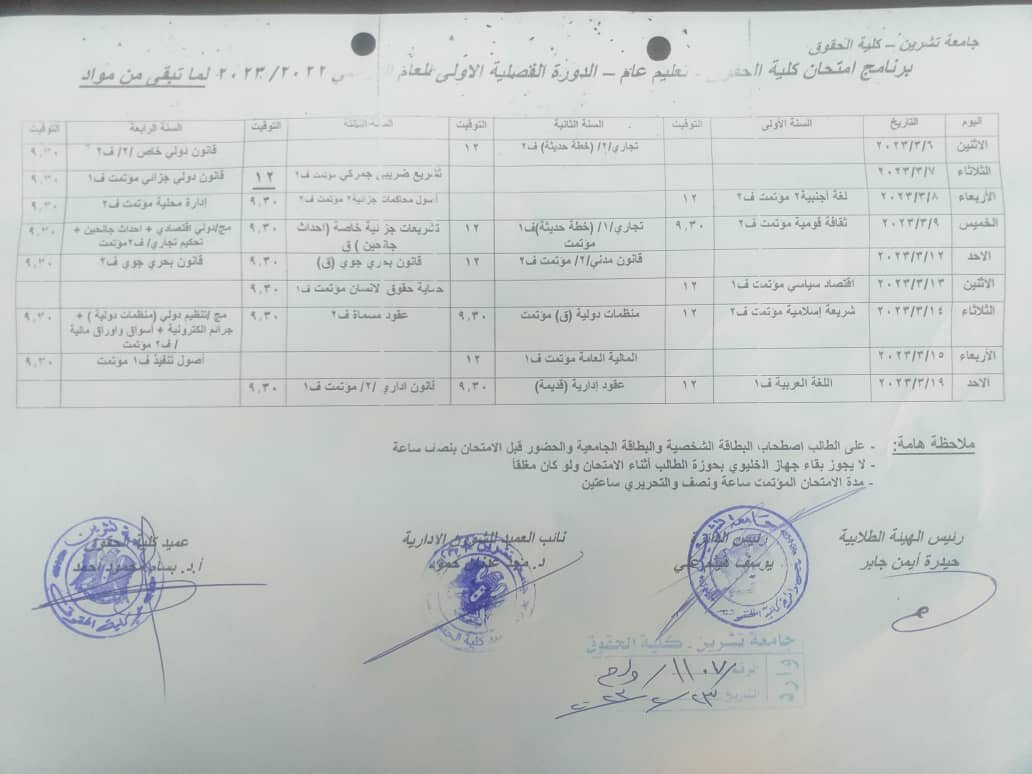 جامعة تشرين – كلية الحقوق
برنامج امتحان كلية الحقوق - تعليم عام – الدورة الفصلية الاولى للعام ٢٠٢٣/٢٠٢٢ لما تبقى من مواد
اليوم التاريخ السنة الأولى التوقيت السنة الثانية التوقيت السنة الثالثة التوقيت السنة الرابعة التوقيت
الاثنين ٢٠٢٣/٣/٦ تجاري/٢/ (خطة حديثة) ف٢ ١٢ قانون دولي خاص /٢/ ف٢ ٩.٣٠
الثلاثاء ٢٠٢٣/٣/٧ تشريع ضريبي جمركي مؤتمت ف٢ ١٢ قانون دولي جزائي مؤتمت ف١ ٩.٣٠
الأربعاء ٢٠٢٣/٣/٨ لغة أجنبية٢ مؤتمت ف٢ ١٢ أصول محاكمات جزائية٢ مؤتمت ف٢ ٩.٣٠ إدارة محلية مؤتمت ف٢ ٩.٣٠
الخميس ٢٠٢٣/٣/٩ ثقافة قومية مؤتمت ف٢ ٩.٣٠ تجاري/١/ (خطة حديثة)ف١ مؤتمت ١٢ تشريعات جزئية خاصة (احداث جانحين ) ق ٩.٣٠ مج/دولي اقتصادي + احداث جانحين + تحكيم تجاري/ ف٢مؤتمت ٩.٣٠
الاحد ٢٠٢٣/٣/١٢ قانون مدني/٢/ مؤتمت ف٢ ١٢ قانون بحري جوي (ق) ٩.٣٠ قانون بحري جوي ف٢ ٩.٣٠
الاثنين ٢٠٢٣/٣/١٣ اقتصاد سياسي مؤتمت ف١ ١٢ حماية حقوق لانسان مؤتمت ف١ ٩.٣٠
الثلاثاء ٢٠٢٣/٣/١٤ شريعة إسلامية مؤتمت ف٢ ١٢ منظمات دولية (ق) مؤتمت ٩.٣٠ عقود مسماة ف٢ ٩.٣٠ مج /تنظيم دولي (منظمات دولية ) + جرائم الكترونية + أسواق واوراق مالية / ف٢ مؤتمت ٩.٣٠
الأربعاء ٢٠٢٣/٣/١٥ المالية العامة مؤتمت ف١ ١٢ أصول تنفيذ ف١ مؤتمت ٩.٣٠
الاحد ٢٠٢٣/٣/١٩ اللغة العربية ف١ ١٢ عقود إدارية (قديمة) ٩.٣٠ قانون اداري /٢/ مؤتمت ف١ ٩.٣٠
ملاحظة هامة: - على الطالب اصطحاب البطاقة الشخصية والبطاقة الجامعية والحضور قبل الامتحان بنصف ساعة
- لا يجوز بقاء جهاز الخليوي بحوزة الطالب أثناء الامتحان ولو كان مغلقاً
- مدة الامتحان المؤتمت ساعة ونصف والتحريري ساعتين
رئيس الهيئة الطلابية رئيس نائب العميد للشؤون الادارية عميد كلية الحقوق
حيدرة أيمن جابر يوسف أ.د. بسام محمود احمد
جامعة تشرين - كلية الحقوق
وارد
١١٠٧ / و/ح
٢٠٢٣/٢/٢٣